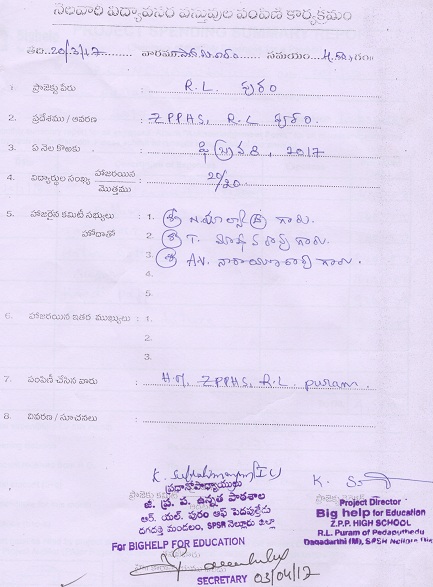 నెలవారి విద్యావసర వస్తువుల పంపిణీ కార్యక్రమం
తేది..20/3/17.. వారము సోమవారం సమయం..4.00 గం॥
1. ప్రాజెక్టు పేరు : R.L. పురం
2. ప్రదేశము / ఆవరణ : ZPPHS, R.L పురం.
3. ఏ నెల కొఱకు : ఫిబ్రవరి, 2017
4. విద్యార్థుల సంఖ్య హాజరయిన : 20/20.
మొత్తము
5. హాజరైన కమిటీ సభ్యులు : 1. శ్రీ N. గారు.
హోదాతో 2. శ్రీ T. గారు.
3. శ్రీ A.V. నారాయణరావు గారు.
4.
5.
6. హాజరయిన ఇతర ముఖ్యులు : 1.
2.
3.
7. పంపిణీ చేసిన వారు : H.M, ZPPHS, R.L. puram.
8. వివరణ / సూచనలు :
K. Subrahmanyam
ప్రధానోపాధ్యాయులు
జి. ప్ర. ప. ఉన్నత పాఠశాల
ఆర్. యల్. పురం ఆఫ్ పెదపుత్తేడు
దగదర్తి మండలం, SPSR నెల్లూరు జిల్లా
K. S
Project Director
Big help for Education
Z.P.P. HIGH SCHOOL
R.L. Puram of Pedaputhedu
Dagadarthi (M), SPSR Nellore Dis
For BIGHELP FOR EDUCATION
SECRETARY 03/04/17